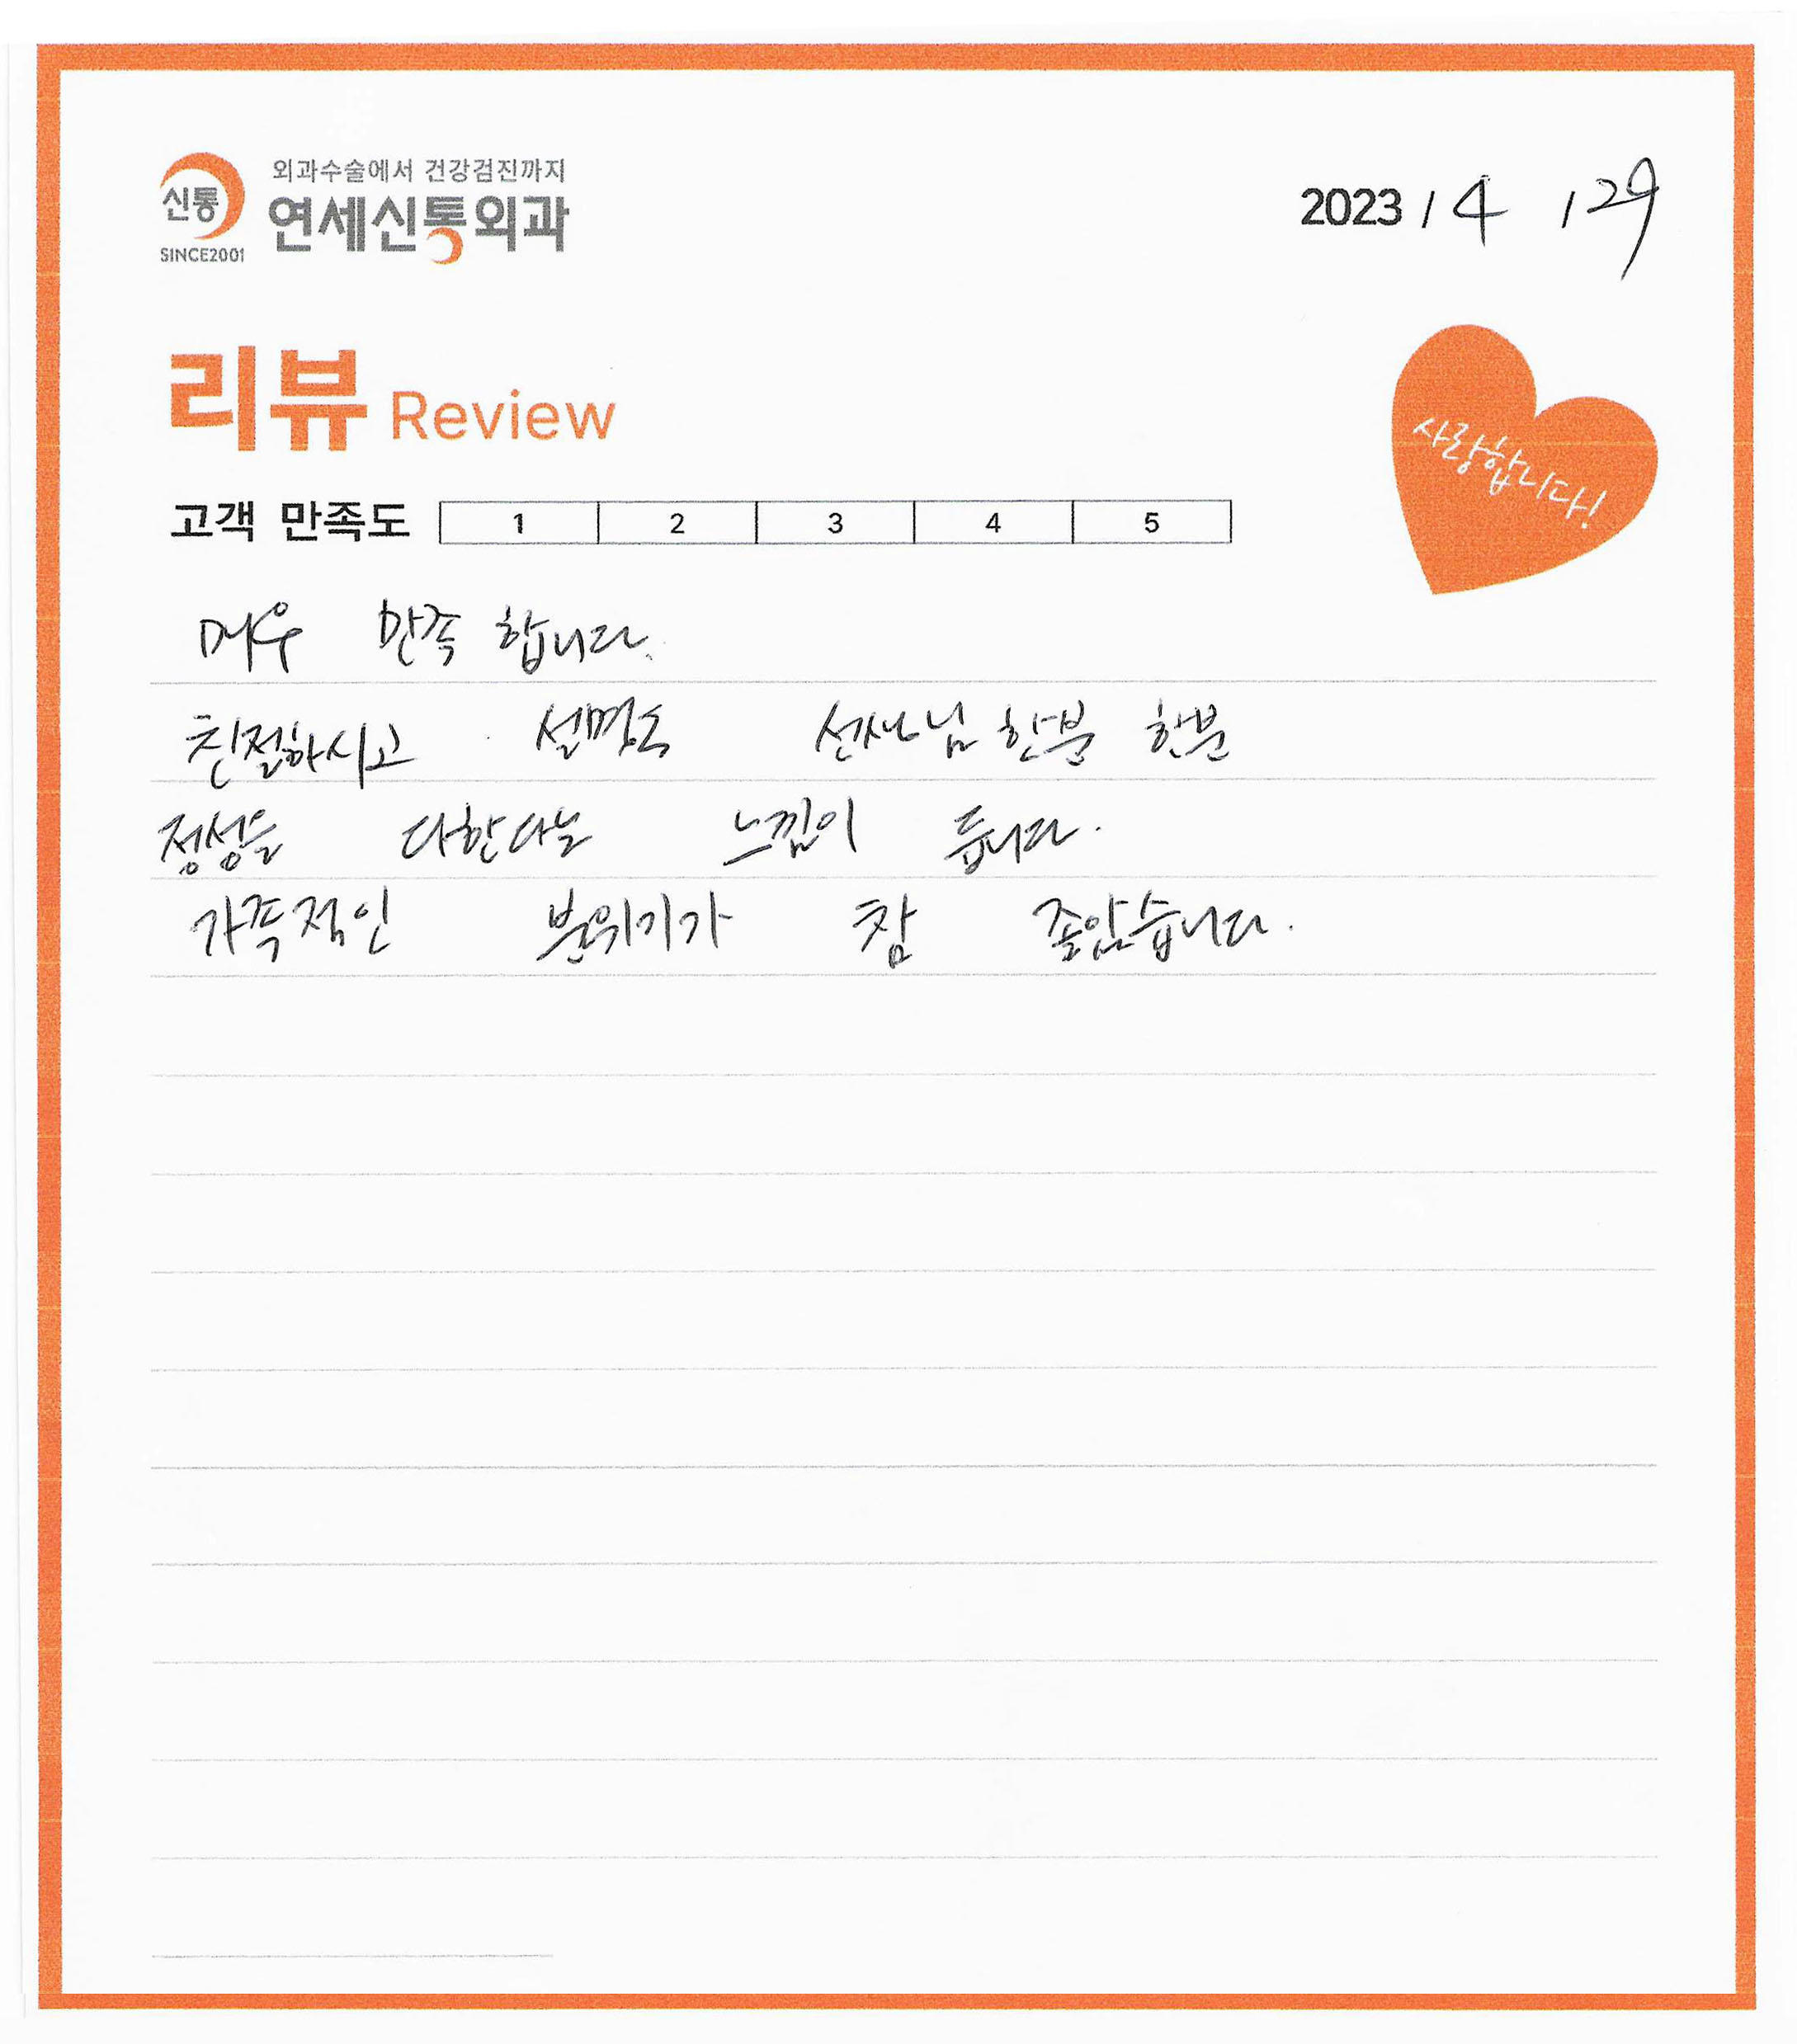 외과수술에서 건강검진까지
신통
연세신통외과
SINCE2001
2023 / 4 / 29
리뷰 Review
사랑합니다!
고객 만족도 1 2 3 4 5
매우 만족 합니다.
친절하시고 설명도 선생님 한분 한분
정성을 다한다는 느낌이 듭니다.
가족적인 분위기가 참 좋았습니다.